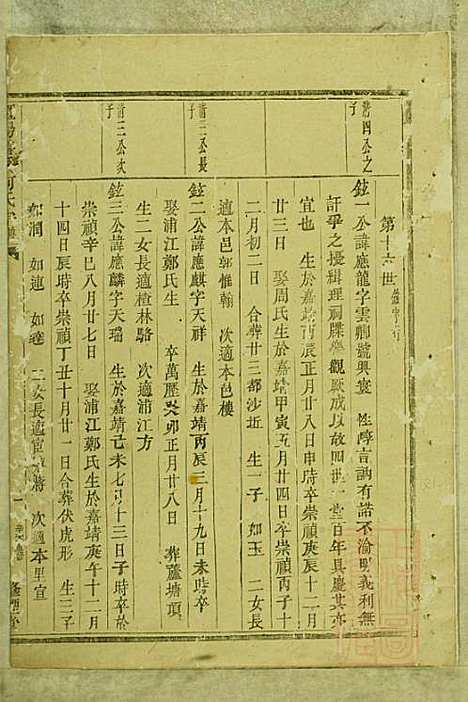 第十六世
蕭四公之子
鉉一公諱應龍字雲卿號興寰 性醇言訥有諾不渝明義利無
訐爭之擾緝理祠牒樂觀厥成以故四世一堂百年具慶其亦
宜也 生於嘉靖丙辰正月廿八日申時卒崇禎庚辰十二月
廿三日 娶周氏生於嘉靖甲寅五月廿四日卒崇禎丙子十
二月初二日 合葬廿三都沙坵 生一子 如玉 二女長
適本邑郭惟翰 次適本邑樓
蕭三公長子
鉉二公諱應麒字天祥 生於嘉靖丙辰三月十九日未時卒
娶浦江鄭氏生 卒萬歷癸卯正月廿八日 葬蘆塘項
生二女長適楂林駱 次適浦江方
蕭三公次子
鉉三公諱應麟字天瑞 生於嘉靖己未七月十三日子時卒於
崇禎辛巳八月廿七日 娶浦江鄭氏生於嘉靖庚午十二月
十四日辰時卒崇禎丁丑十月廿一日合葬伏虎形 生三子
如潤 如連 如達 二女長適 蔣 次適本里宣